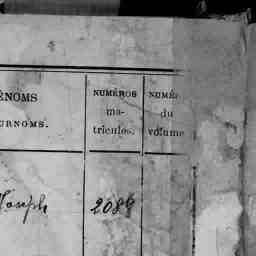 ÉNOMS
URNOMS.
NUMÉROS
ma-
tricules.
NUMÉ
du
volume
Joseph
2089